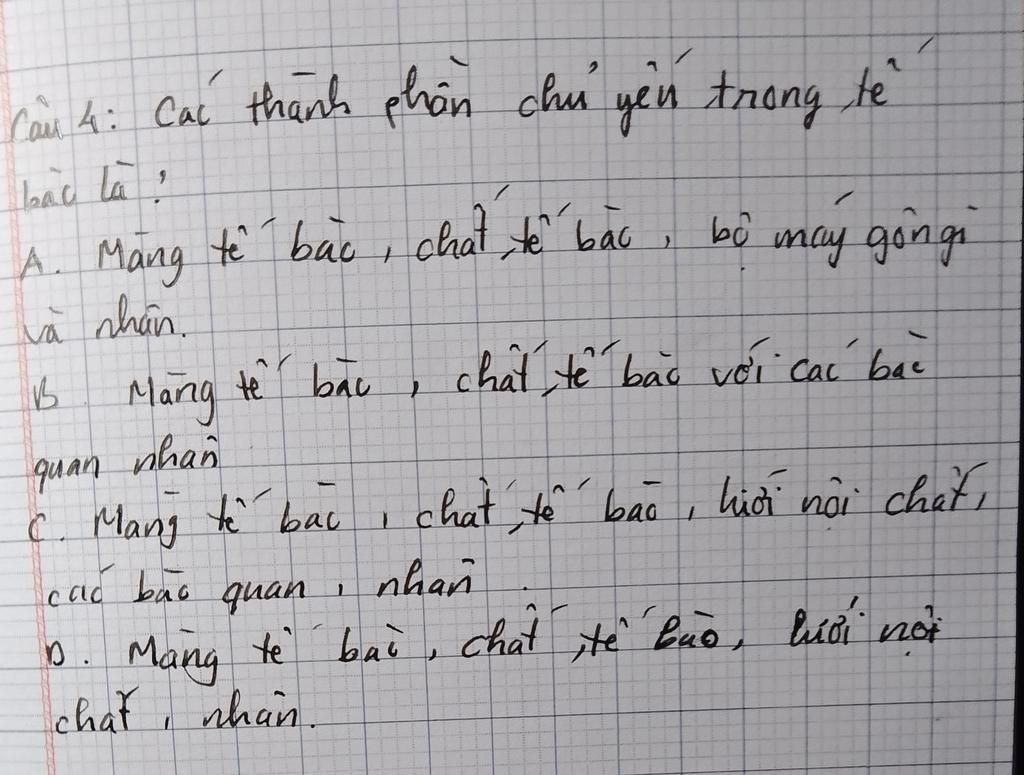 Câu 4: Các thành phần chủ yếu trong tế
bào là:
A. Màng tế bào, chất tế bào, bộ máy gôngi
và nhân.
B. Màng tế bào, chất tế bào với các bào
quan nhân
C. Màng tế bào, chất tế bào, lưới nội chất,
các bào quan, nhân.
D. Màng tế bào, chất tế bào, lưới nội
chất, nhân.